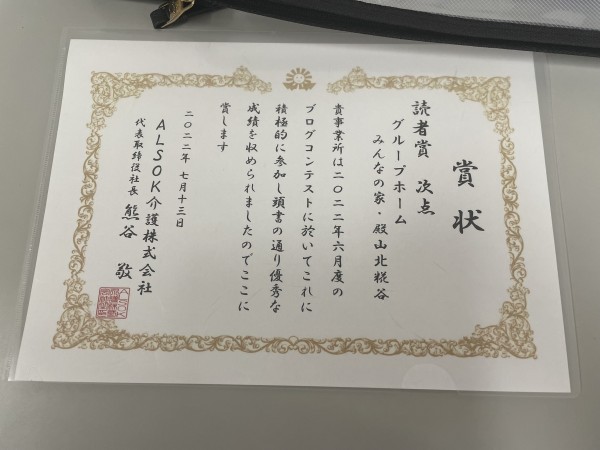 賞状
読者賞 次点
グループホーム
みんなの家・殿山北糀谷
貴事業所は二〇二二年六月度の
ブログコンテストに於いてこれに
積極的に参加し頭書の通り優秀な
成績を収められましたのでここに
賞します
二〇二二年 七月十三日
ALSOK介護株式会社
代表取締役社長 熊谷 敬